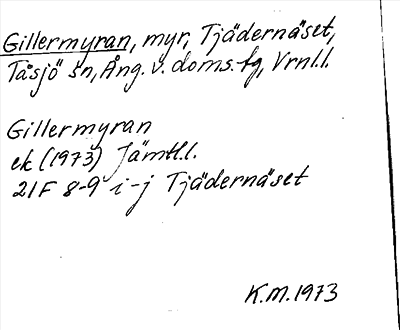 Gillermyran, myr, Tjädernäset,
Tåsjö sn, Ång. v. doms. fg, Vrnl.l.
Gillermyran
ek (1973) Jämtl.l.
21F 8-9 i-j Tjädernäset
K.M. 1973